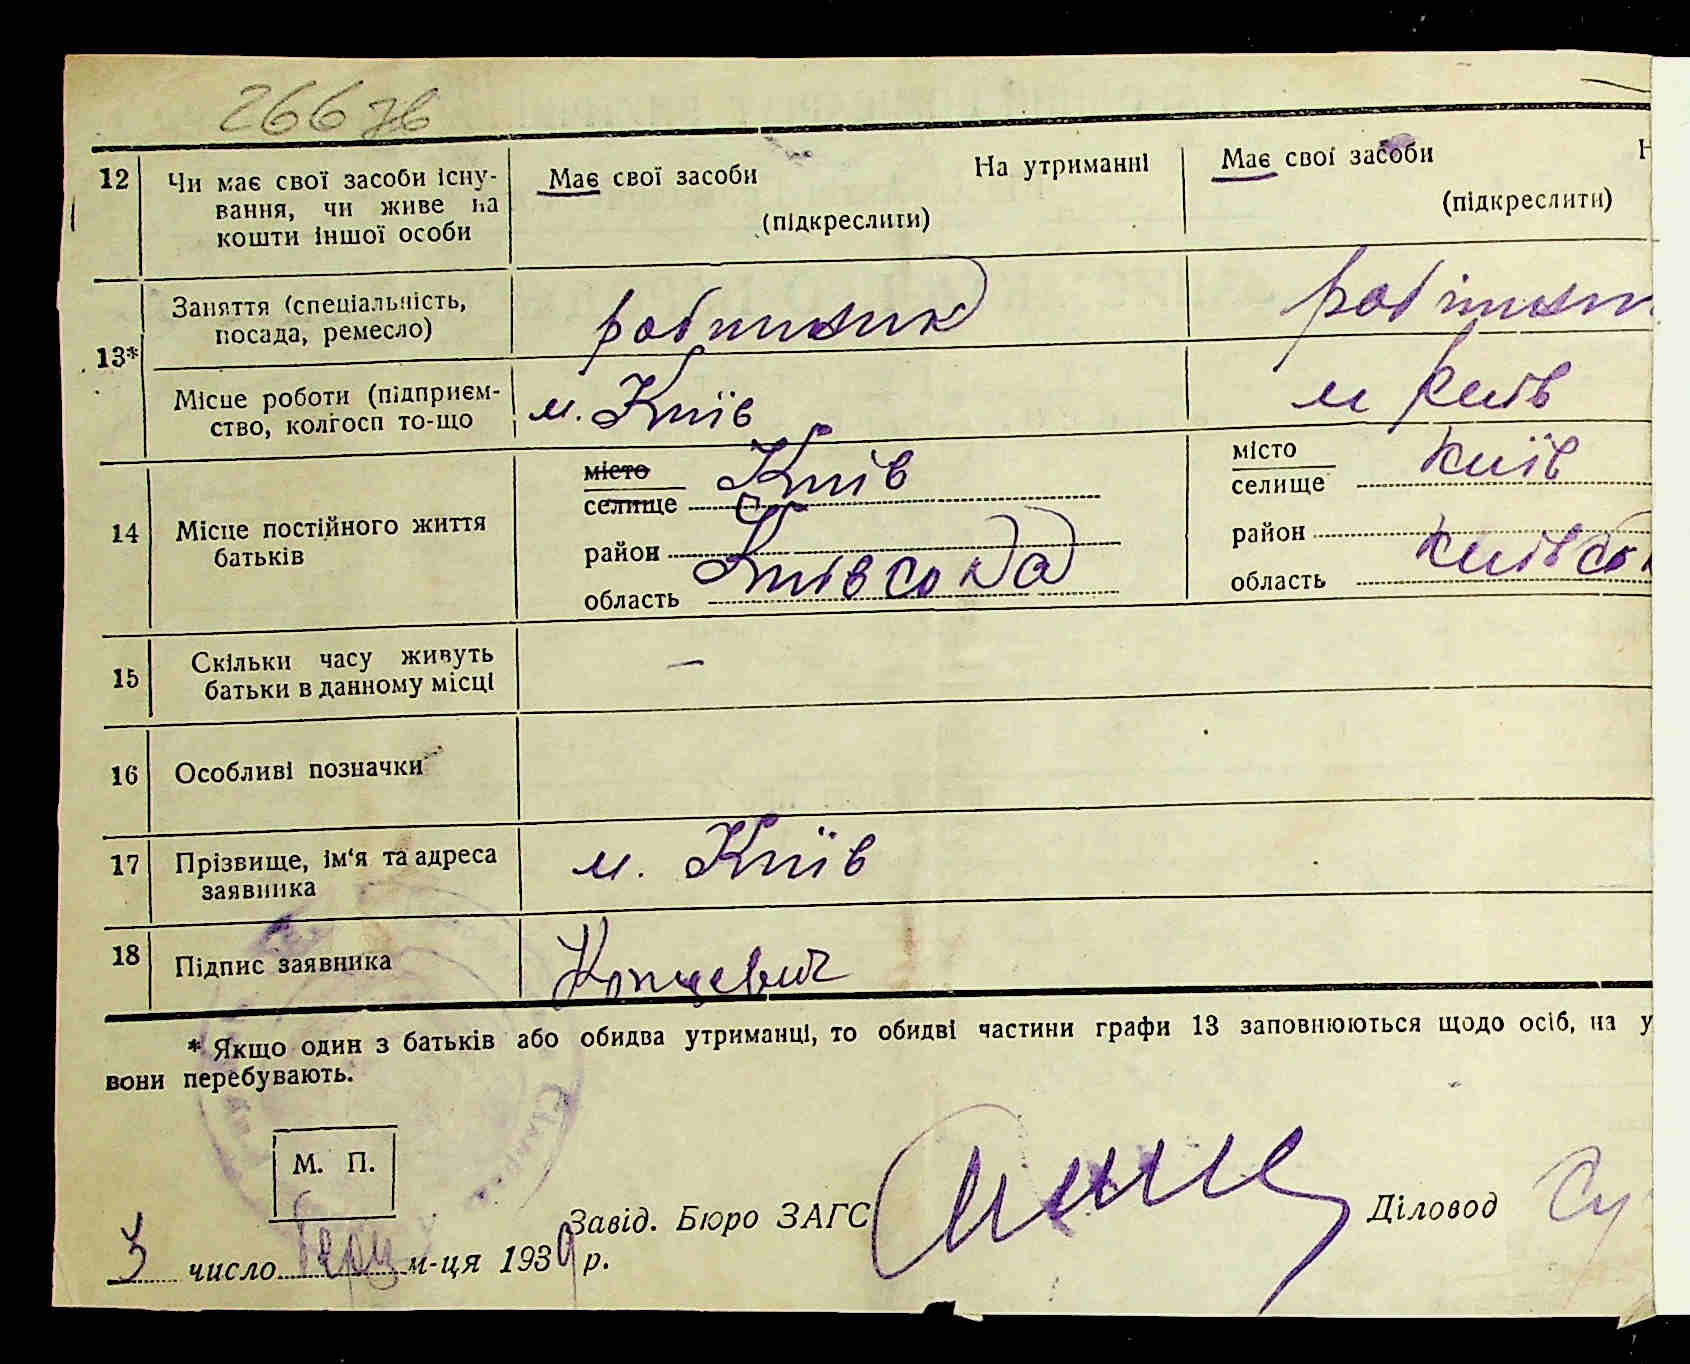 266 зв
12 Чи має свої засоби існу-
вання, чи живе на
кошти іншої особи
Має свої засоби На утриманні
(підкреслити)
Має свої засоби Н
(підкреслити)
13*
Заняття (спеціальність,
посада, ремесло)
робітник
робітни
Місце роботи (підприєм-
ство, колгосп то-що
м. Київ
м Київ
14 Місце постійного життя
батьків
місто Київ
селище
район
область Київська
місто Київ
селище
район
область Київськ
15 Скільки часу живуть
батьки в данному місці
—
16 Особливі позначки
17 Прізвище, ім‘я та адреса
заявника
м. Київ
18 Підпис заявника
* Якщо один з батьків або обидва утриманці, то обидві частини графи 13 заповнюються щодо осіб, на у
вони перебувають.
М. П.
Завід. Бюро ЗАГС
Діловод
3 число м-ця 1939 р.